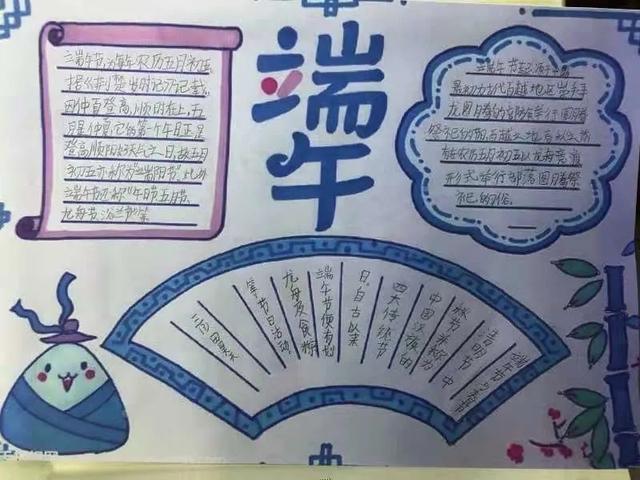 端午
端午节,为每年农历五月初五。
据《荆楚岁时记》记载,
因仲夏登高,顺阳在上,五
月是仲夏,它的第一个午日正是
登高顺阳好天气之日,故五月
初五亦称为“端阳节”。此外
端午节还称“午日节、五月节、
龙舟节、浴兰节”等
端午节起源于中国
最初为古代百越地区崇拜
龙图腾的部族举行图腾
祭祀的节日,百越之地
在农历五月初五以龙舟竞渡
形式举行部落图腾祭
祀的习俗。
端午节
清明节
秋节并称为中
中国汉族的
四大传统节
日。自古以来
端午节便有划
龙舟及食粽
等节日活动